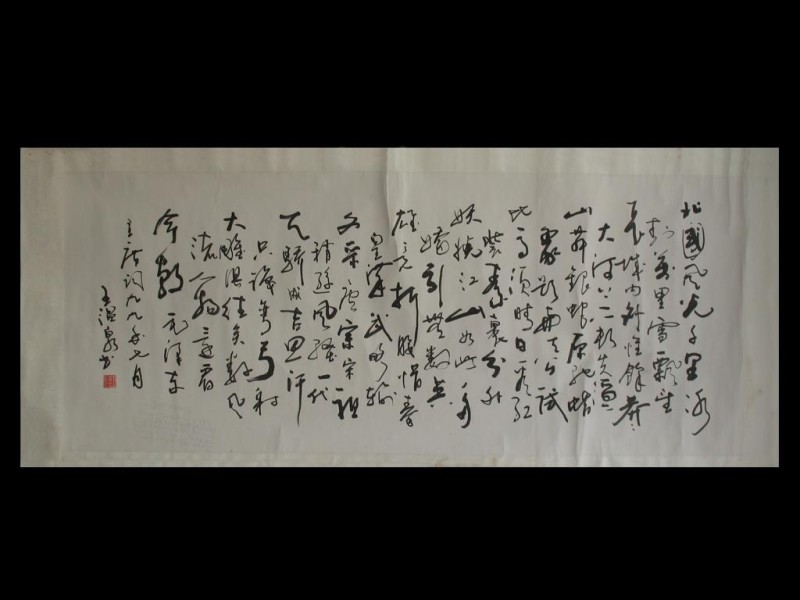 北國風光千里冰
封萬里雪飄望
長城内外惟餘莽莽
大河上下頓失滔滔
山舞銀蛇原馳蠟
象欲與天公試
比高須晴日看紅
裝素裹分外
妖嬈江山如此多
嬌引無數英
雄競折腰惜秦
皇漢武略輸
文采唐宗宋祖
稍遜風騷一代
天驕成吉思汗
只識彎弓射
大雕俱往矣數風
流人物還看
今朝 毛澤東
主席词九九年七月
王温泉书